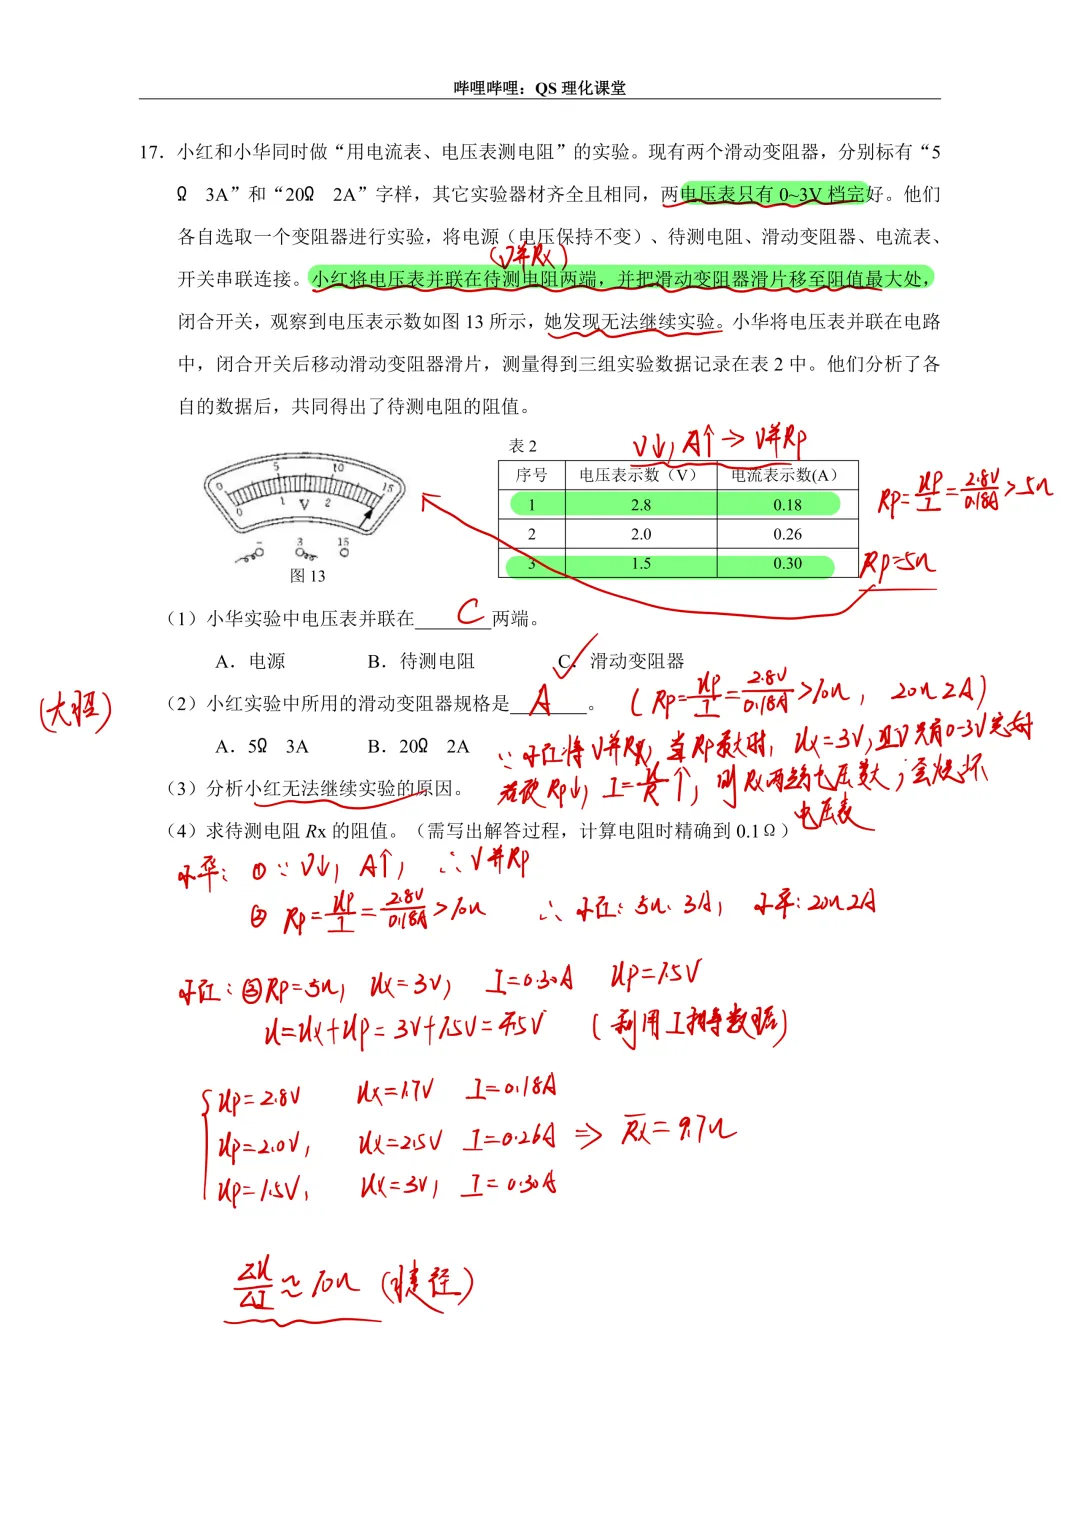 哔哩哔哩：QS 理化课堂
17．小红和小华同时做“用电流表、电压表测电阻”的实验。现有两个滑动变阻器，分别标有“5
Ω 3A”和“20Ω 2A”字样，其它实验器材齐全且相同，两电压表只有 0~3V 档完好。他们
各自选取一个变阻器进行实验，将电源（电压保持不变）、待测电阻、滑动变阻器、电流表、
(V并Rx)
开关串联连接。小红将电压表并联在待测电阻两端，并把滑动变阻器滑片移至阻值最大处，
闭合开关，观察到电压表示数如图 13 所示，她发现无法继续实验。小华将电压表并联在电路
中，闭合开关后移动滑动变阻器滑片，测量得到三组实验数据记录在表 2 中。他们分析了各
自的数据后，共同得出了待测电阻的阻值。
表 2
V↓, A↑→V并Rp
序号 电压表示数（V） 电流表示数(A)
1 2.8 0.18
2 2.0 0.26
3 1.5 0.30
Rp=Up/I=2.8V/0.18A>5Ω
Rp=5Ω
0 5 10 15
0 1 2 3
V
- 3 15
图 13
（1）小华实验中电压表并联在____C____两端。
A．电源 B．待测电阻 C．滑动变阻器
(大胆)
（2）小红实验中所用的滑动变阻器规格是____A____。 (Rp=Up/I=2.8V/0.18A>10Ω, 20Ω 2A)
A．5Ω 3A B．20Ω 2A
∵小红将V并Rx, 当Rp最大时, Ux=3V, 且V只有0-3V完好
（3）分析小红无法继续实验的原因。
若使Rp↓, I=U/R↑, 则Rx两端电压变大, 会烧坏
电压表
（4）求待测电阻 Rx 的阻值。（需写出解答过程，计算电阻时精确到 0.1Ω）
小华: ①∵V↓, A↑, ∴V并Rp
② Rp=Up/I=2.8V/0.18A>10Ω ∴小红: 5Ω 3A, 小华: 20Ω 2A
小红: ③Rp=5Ω, Ux=3V, I=0.30A Up=1.5V
U=Ux+Up=3V+1.5V=4.5V (利用I相等数据)
Up=2.8V Ux=1.7V I=0.18A
Up=2.0V, Ux=2.5V I=0.26A ⇒ Rx=9.7Ω
Up=1.5V, Ux=3V, I=0.30A
ΔU/ΔI≈10Ω (捷径)